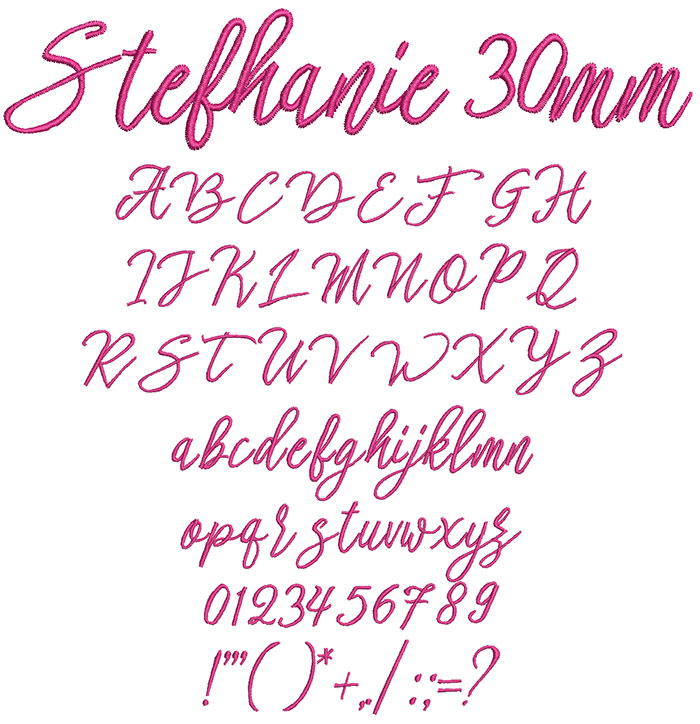 Stefhanie 30mm
ABCDEFGH
IJKLMNOPQ
RSTUVWXYZ
abcdefghijklmn
opqrstuvwxyz
0123456789
!"'()*+,./:;=?